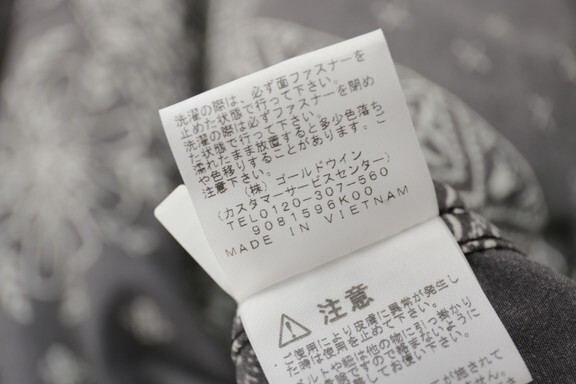 洗濯の際は、必ず面ファスナーを
止めた状態で行って下さい。
洗濯の際は必ずファスナーを閉め
た状態で行って下さい。
濡れたまま放置すると多少色落ち
や色移りすることがあります。ご
注意下さい。
(株)ゴールドウイン
(カスタマーサービスセンター)
TEL0120-307-560
9081596K00
MADE IN VIETNAM
注意
・ご使用により皮膚に異常が発生し
た時は使用を止めて下さい。
ベルトや紐は他の物に引っ掛かり
お使い下さい。